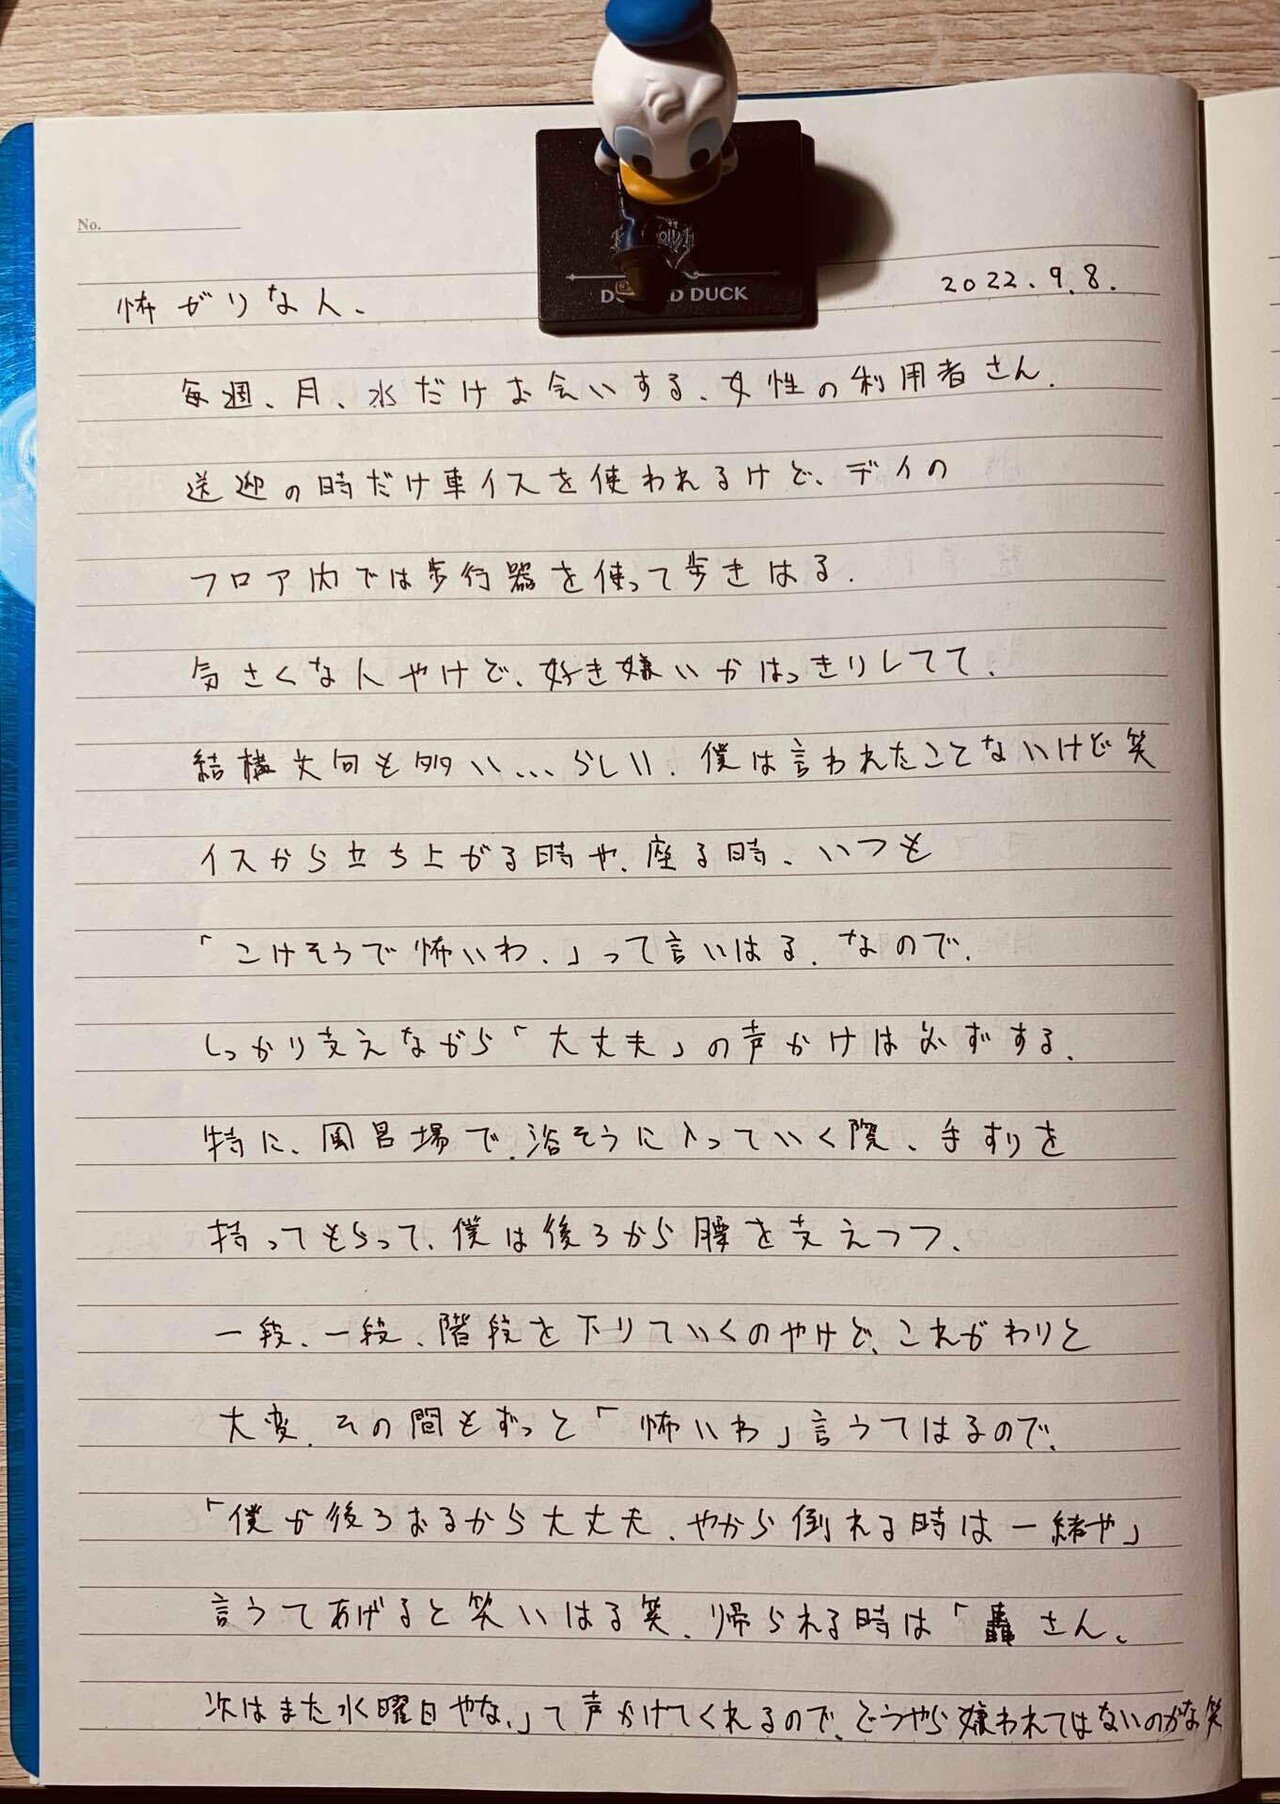 DONALD DUCK
No.
2022.9.8.
怖がりな人、
毎週、月、水だけお会いする、女性の利用者さん。
送迎の時だけ車イスを使われるけど、デイの
フロア内では歩行器を使って歩きはる。
気さくな人やけど、好き嫌いがはっきりしてて、
結構文句も多い...らしい。僕は言われたことないけど笑
イスから立ち上がる時や、座る時、いつも
「こけそうで怖いわ。」って言いはる。なので、
しっかり支えながら「大丈夫」の声かけは必ずする。
特に、風呂場で、浴そうに入っていく際、手すりを
持ってもらって、僕は後ろから腰を支えつつ、
一段、一段、階段を下りていくのやけど、これがわりと
大変。その間もずっと「怖いわ」言うてはるので、
「僕が後ろおるから大丈夫。やから倒れる時は一緒や」
言うてあげると笑いはる笑。帰られる時は「轟さん、
次はまた水曜日やな。」て声かけてくれるので、どうやら嫌われてはないのかな笑